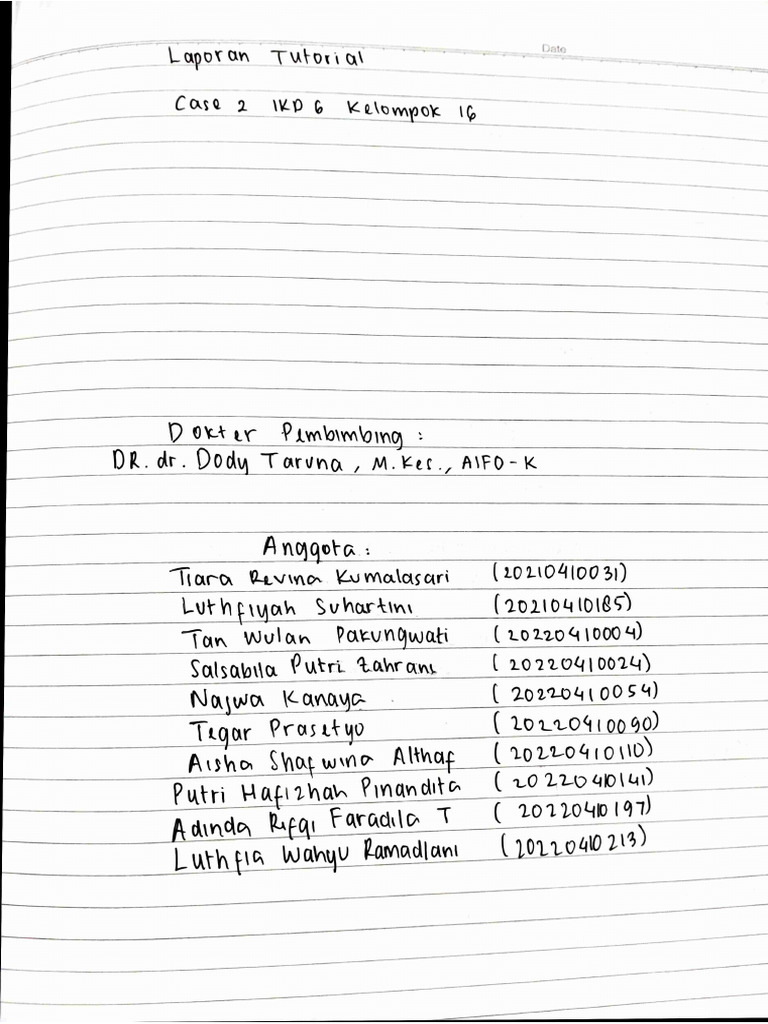 Date
Laporan Tutorial
Case 2 IKD 6 Kelompok 16
Dokter Pembimbing :
DR. dr. Dody Taruna, M.Kes., AIFO-K
Anggota :
Tiara Revina Kumalasari (20210410031)
Luthfiyah Suhartini (20210410185)
Tan Wulan Pakungwati (20220410004)
Salsabila Putri Zahrani (20220410024)
Najwa Kanaya (20220410054)
Tegar Prasetyo (20220410090)
Aisha Shafwina Althaf (20220410110)
Putri Hafizhah Pinandita (20220410141)
Adinda Rifqi Faradila T (20220410197)
Luthfia Wahyu Ramadlani (20220410213)